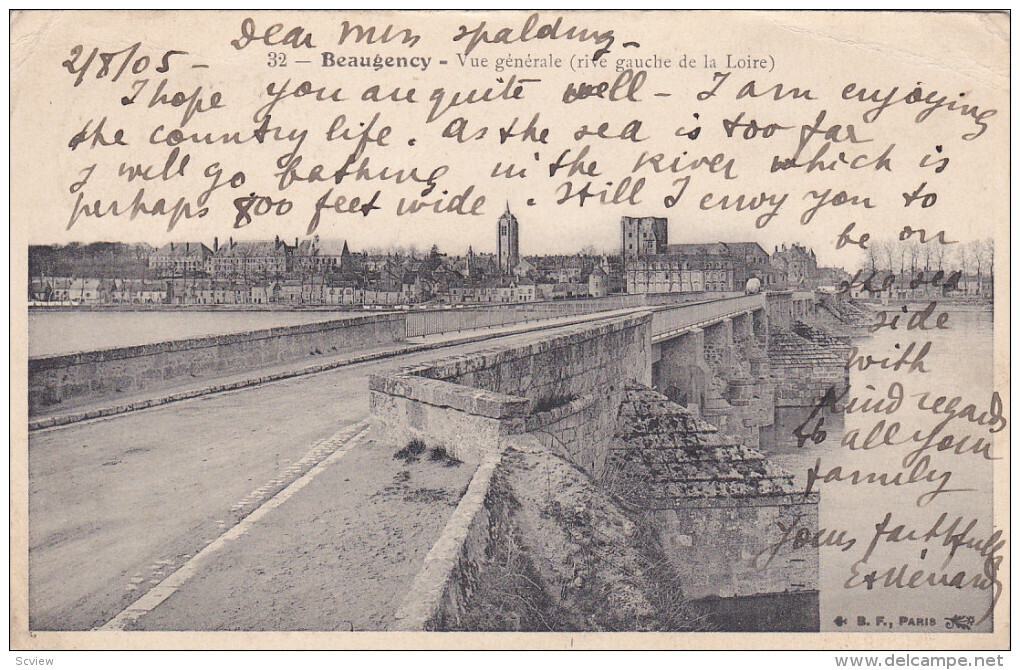 Dear Miss Spalding -
2/8/05 -
32 - Beaugency - Vue générale (rive gauche de la Loire)
I hope you are quite well - I am enjoying
the country life. As the sea is too far
I will go bathing in the River which is
perhaps 800 feet wide. Still I envy you to
be on
the sea
side
with
Kind regards
to all your
family
Yours faithfully
E. Ménard
B. F., PARIS
SCVIEW
www.delcampe.net